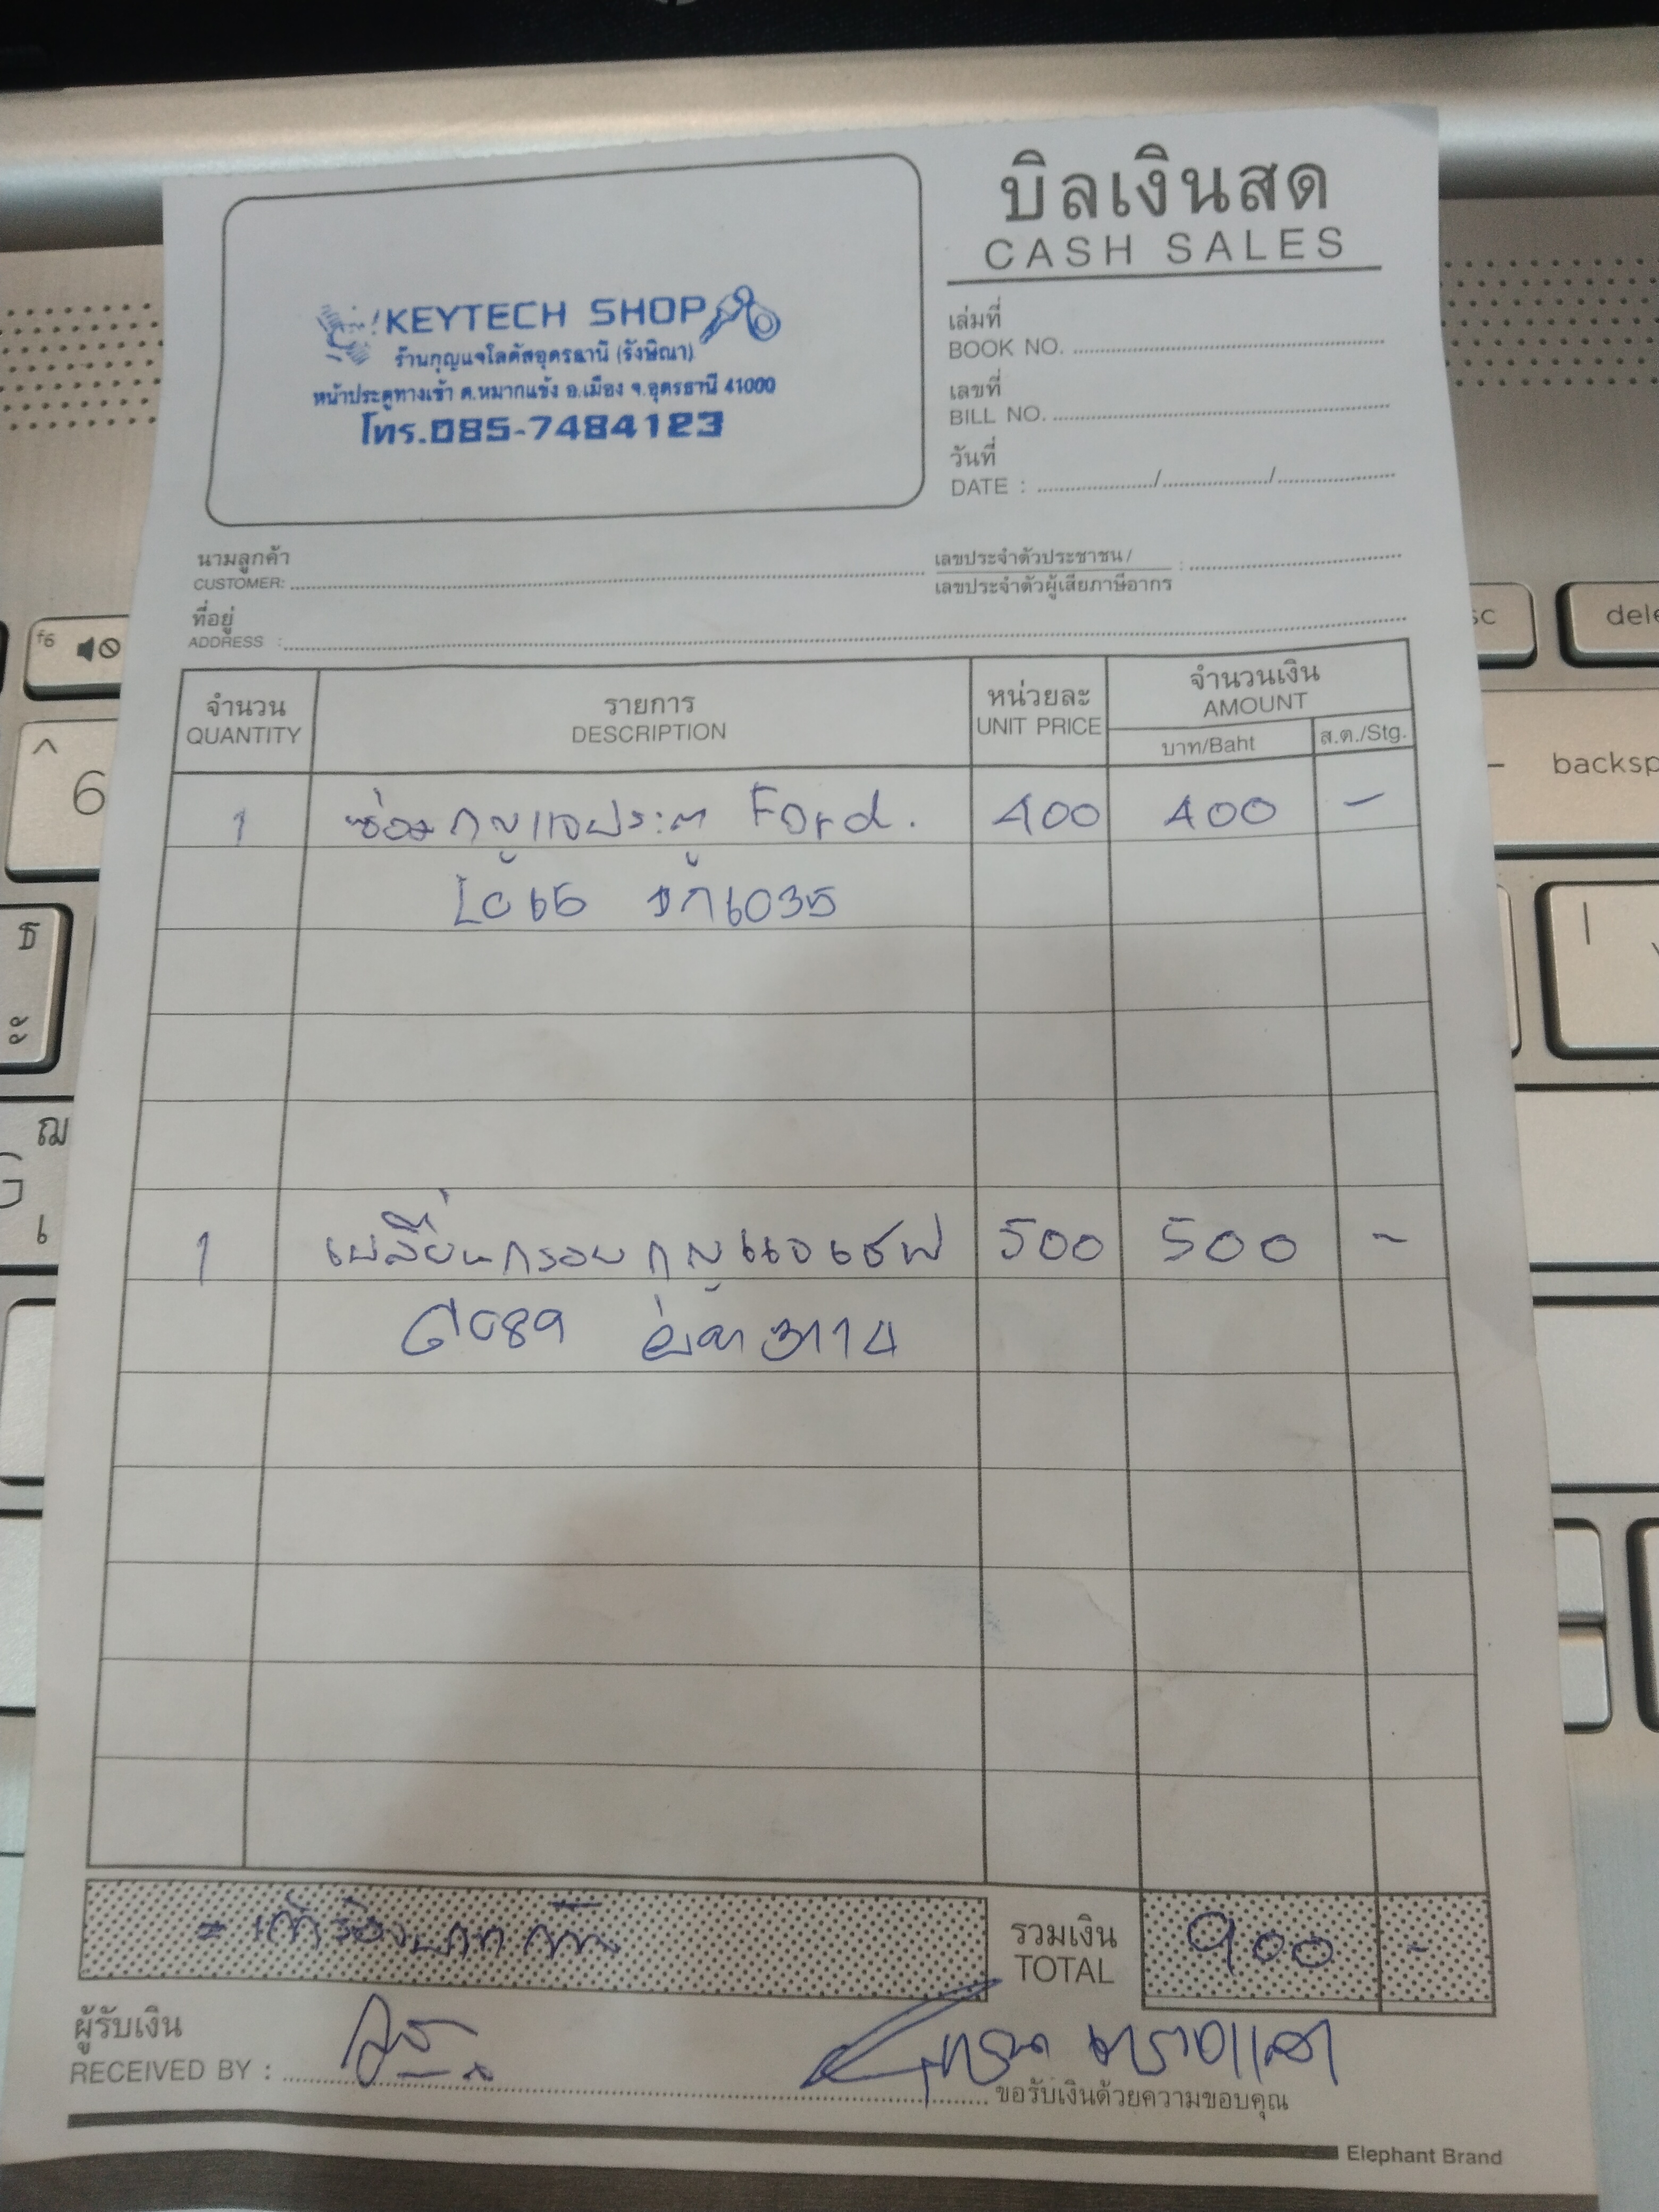 บิลเงินสด
CASH SALES
KEYTECH SHOP
ร้านกุญแจโลตัสอุดรธานี (รังษิณา)
หน้าประตูทางเข้า ต.หมากแข้ง อ.เมือง จ.อุดรธานี 41000
โทร.085-7484123
เล่มที่
BOOK NO.
เลขที่
BILL NO.
วันที่
DATE : / /
นามลูกค้า
CUSTOMER:
เลขประจำตัวประชาชน /
เลขประจำตัวผู้เสียภาษีอากร :
ที่อยู่
ADDRESS :
จำนวน รายการ หน่วยละ จำนวนเงิน
QUANTITY DESCRIPTION UNIT PRICE AMOUNT
บาท/Baht ส.ต./Stg.
1 ซ่อมกุญแจประตู Ford. 400 400 -
6035
1 เปลี่ยนกรอบกุญแจเชฟ 500 500 -
089 3114
= เก้าร้อยบาทถ้วน
รวมเงิน 900 -
TOTAL
ผู้รับเงิน
RECEIVED BY :
ขอรับเงินด้วยความขอบคุณ
Elephant Brand
f6
6
ธ
ะ
ฌ
G
เ
sc
dele
backsp